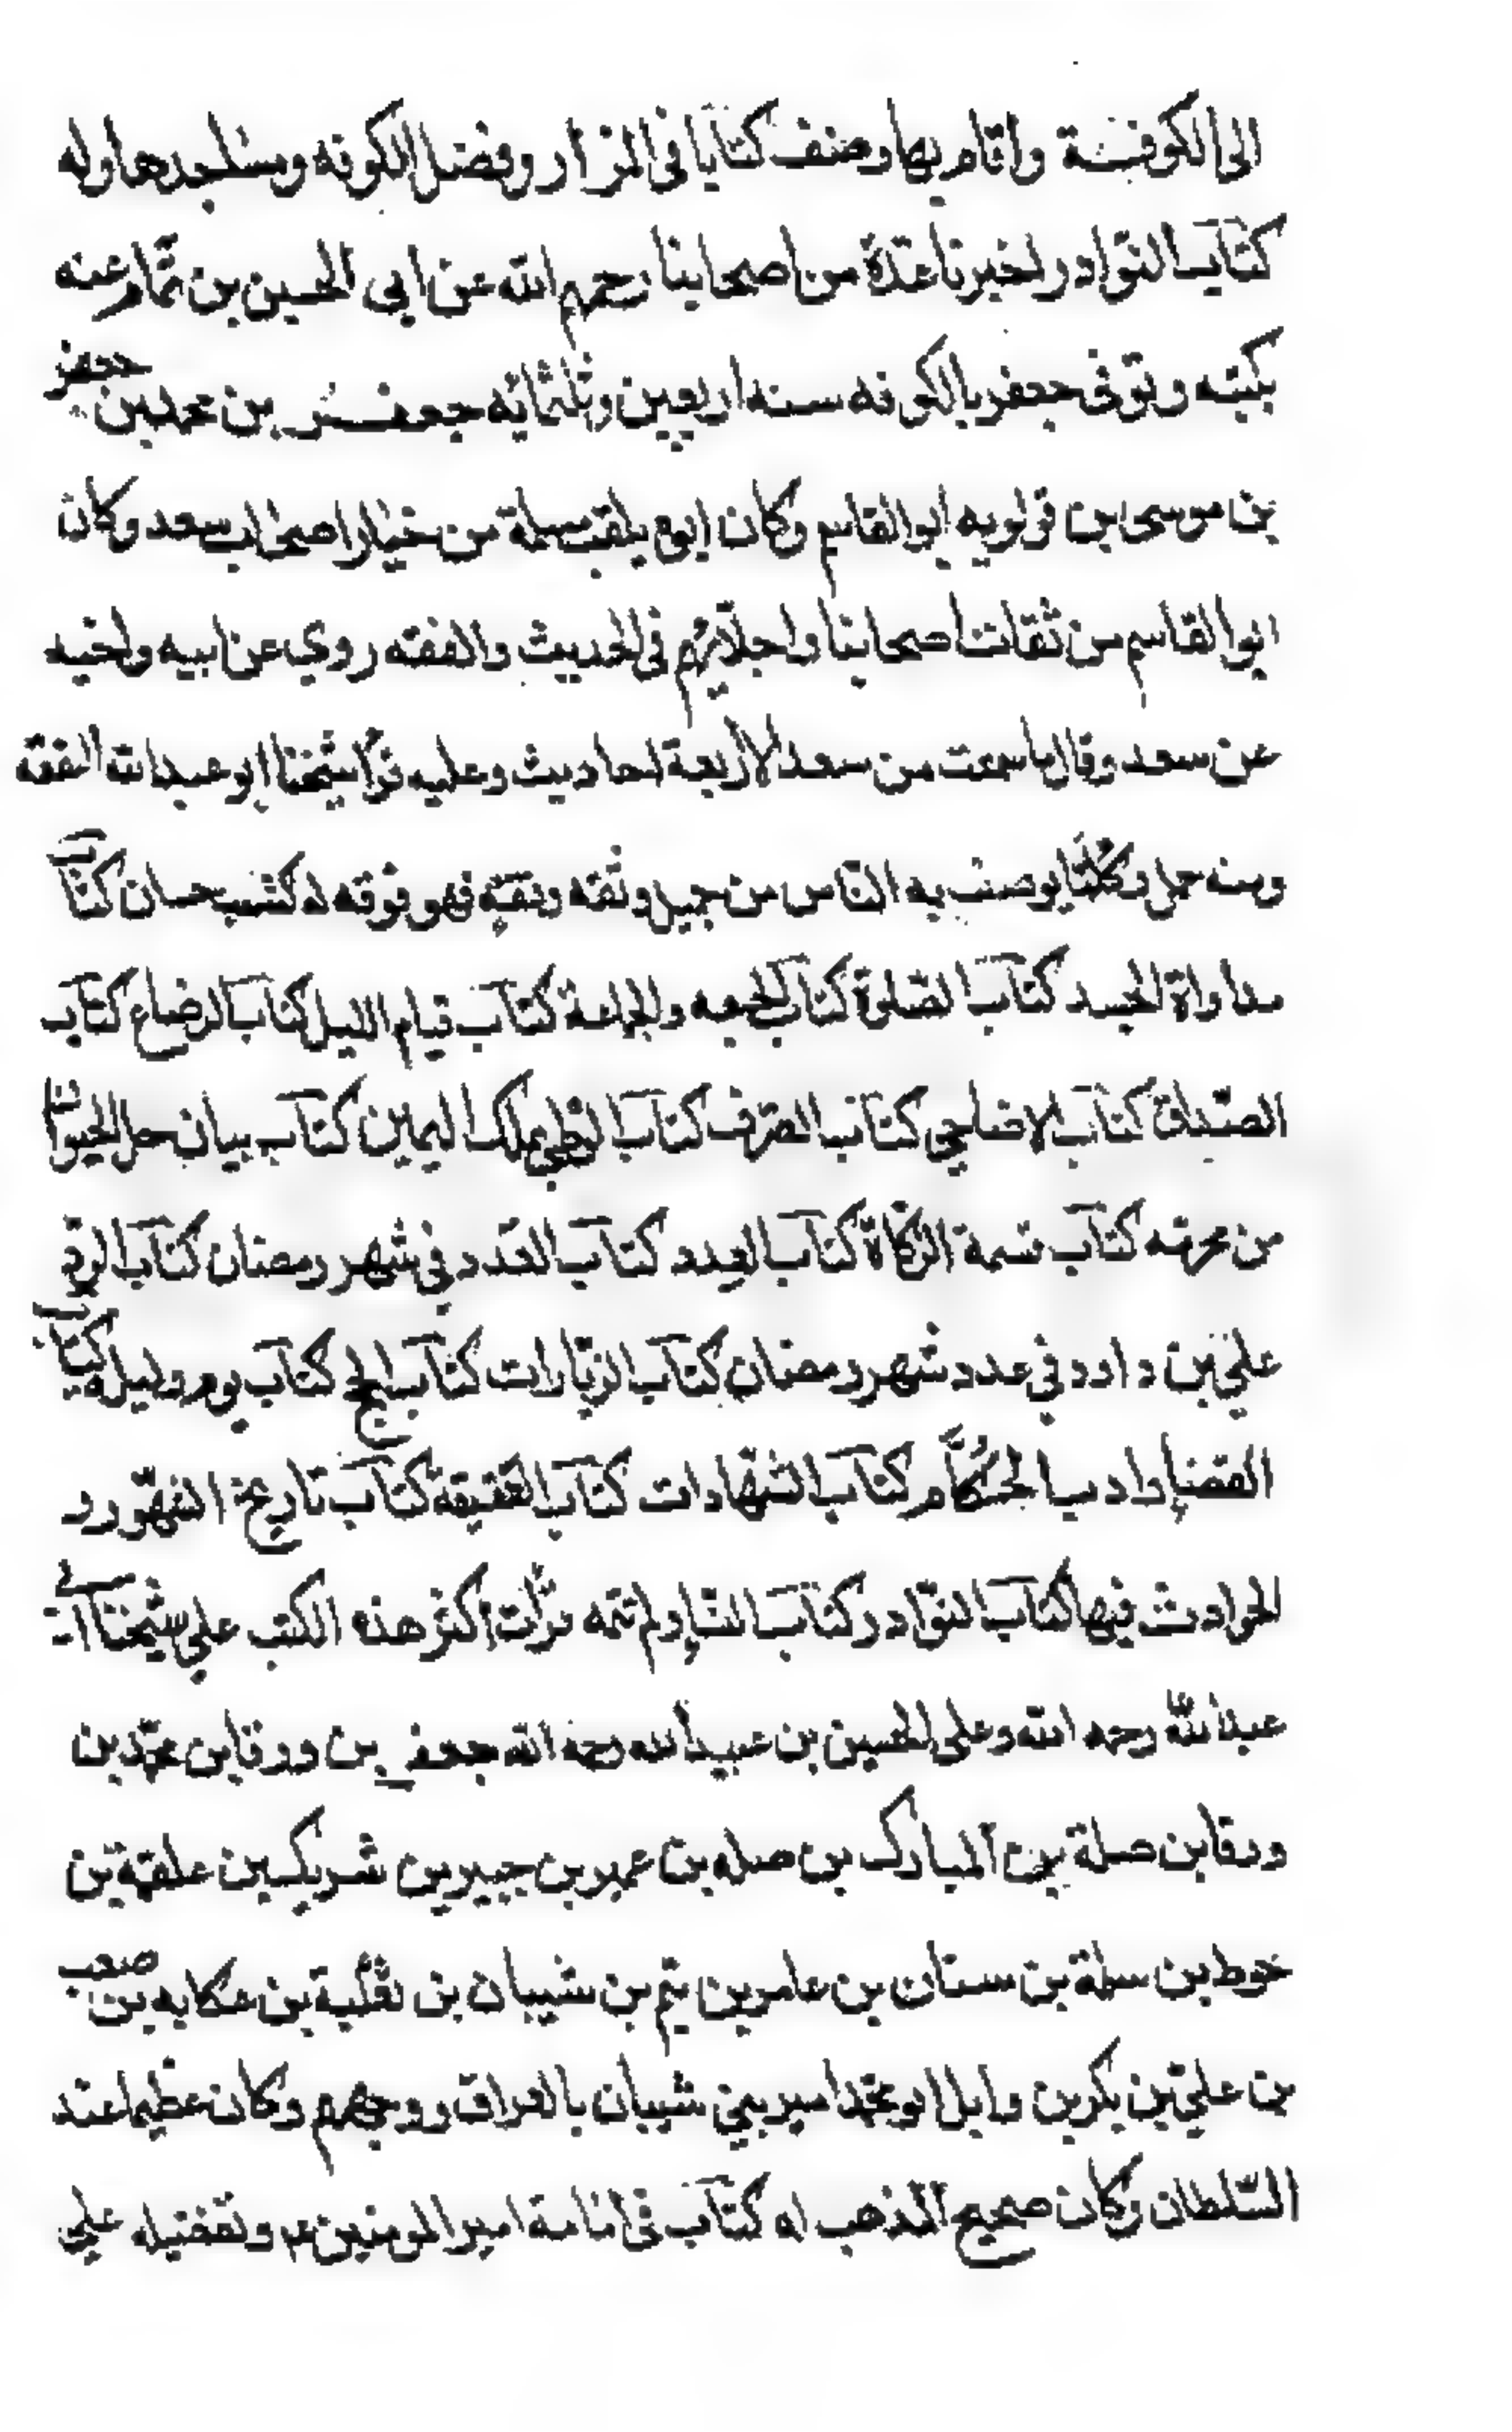 الى الكوفة واقام بها وصنف كتابا فى المزار وفضل الكوفه ومساجدها وله
كتاب النوادر اخبرنا عدة من اصحابنا رحمهم الله عن ابى الحسين بن تمام عنه
بكتبه وتوفى جعفر بالكوفه سنه اربعين وثلثمائه جعفر بن محمد بن جعفر
بن موسى بن قولويه ابو القاسم وكان ابوه يلقب مسلمة من خيار اصحاب سعد وكان
ابو القاسم من ثقات اصحابنا واجلائهم فى الحديث والفقه روى عن ابيه واخيه
عن سعد وقال ما سمعت من سعد الا اربعة احاديث وعليه قرأ شيخنا ابو عبد الله الفقه
ومنه حمل وكلما يوصف به الناس من جميل وثقه وفقه فهو فوقه له كتب حسان كتاب
مداواة الجسد كتاب الصلوة كتاب الجمعه والجماعة كتاب قيام الليل كتاب الرضاع كتاب
الصداق كتاب الاضاحى كتاب الصرف كتاب الوطى بملك اليمين كتاب بيان حل الحيوان
من محرمه كتاب قسمة الزكاة كتاب العدد كتاب العدد فى شهر رمضان كتاب الرد
على بن داود فى عدد شهر رمضان كتاب الزيارات كتاب الحج كتاب يوم وليلة كتاب
القضاء وادب الحكام كتاب الشهادات كتاب العقيقة كتاب تاريخ الشهور و
الحوادث فيها كتاب النوادر كتاب النساء ولم اتمه قرأت اكثر هذه الكتب على شيخنا ابى
عبد الله رحمه الله وعلى الحسين بن عبيد الله رحمه الله جعفر بن ورقا بن محمد بن
ورقا بن صلة بن المبارك بن صله بن عمير بن جبير بن شريك بن علقمة بن
خوط بن سلمة بن سنان بن عامر بن تيم بن شيبان بن ثعلبة بن عكابه بن صعب
بن على بن بكر بن وايل ابو محمد امير بنى شيبان بالعراق ووجههم وكان عظيما عند
السلطان وكان صحيح المذهب له كتاب فى امامة امير المومنين ع م وتفضيله على